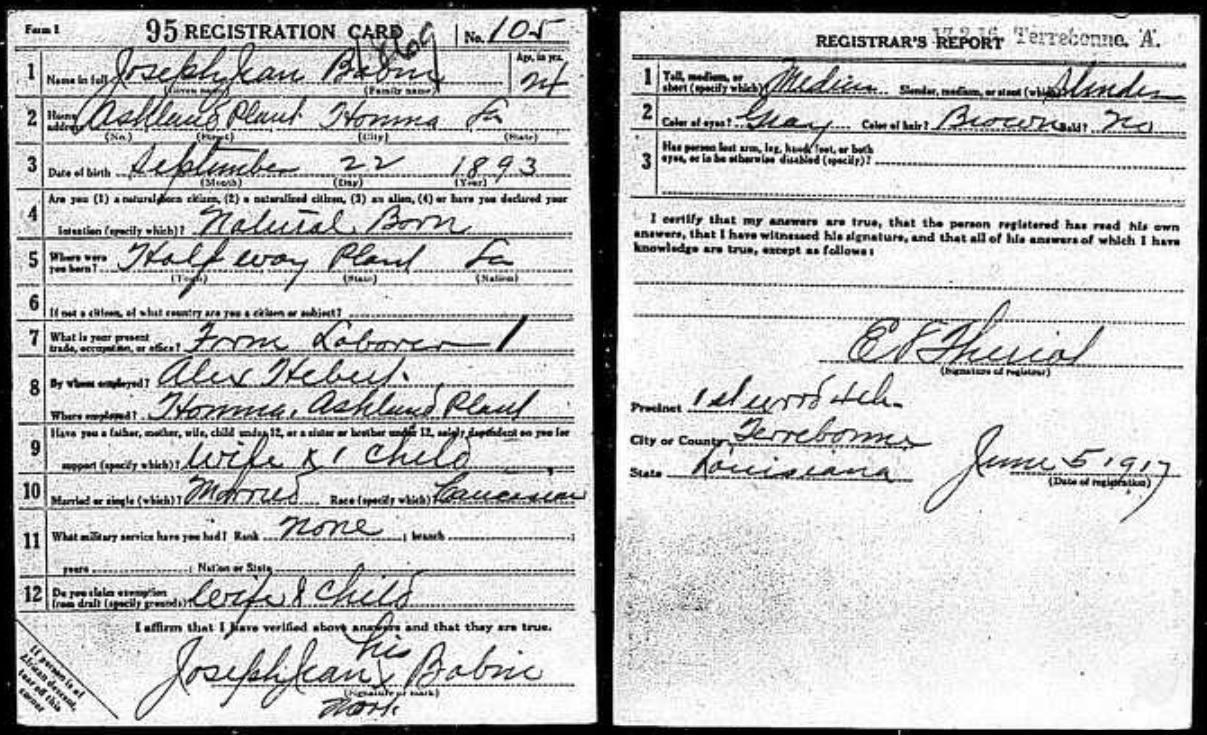 Form 1 95 REGISTRATION CARD No. 105
1 Name in full Joseph Jean Babin Age, in yrs.
(Given name) (Family name)
2 Home address Ashland Plant Homma La
(No.) (Street) (City) (State)
3 Date of birth September 22 1893
(Month) (Day) (Year)
Are you (1) a natural-born citizen, (2) a naturalized citizen, (3) an alien, (4) or have you declared your
4 intention (specify which)? Natural Born
5 Where were you born? Half way Plant La
(Town) (State) (Nation)
6 If not a citizen, of what country are you a citizen or subject?
7 What is your present trade, occupation, or office? Form Laborer 1
8 By whom employed? Alex Hebert.
Where employed? Homma, Ashland Plant
Have you a father, mother, wife, child under 12, or a sister or brother under 12, solely dependent on you for
9 support (specify which)? Wife & 1 Child
10 Married or single (which)? Married Race (specify which)? Caucasian
11 What military service have you had? Rank None ; branch ;
years ; Nation or State
12 Do you claim exemption from draft (specify grounds)? Wife & Child
I affirm that I have verified above answers and that they are true.
his
Joseph Jean x Babin
(Signature or mark)
Mark.
If person is of
African descent,
tear off this
corner
REGISTRAR'S REPORT 17-2-16 Terrebonne. A.
1 Tall, medium, or short (specify which)? Medium Slender, medium, or stout (which)? Slender
2 Color of eyes? Gray Color of hair? Brown Bald? No
3 Has person lost arm, leg, hand, foot, or both
eyes, or is he otherwise disabled (specify)?
I certify that my answers are true, that the person registered has read his own
answers, that I have witnessed his signature, and that all of his answers of which I have
knowledge are true, except as follows:
(Signature of registrar)
Precinct 1st
City or County Terrebonne
State Louisiana June 5 1917
(Date of registration)